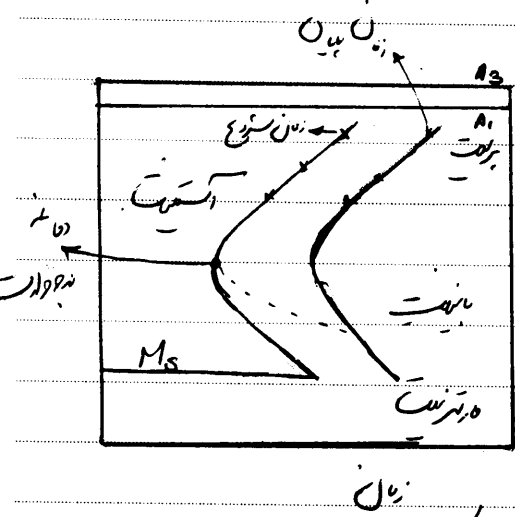 زمان پایان
A3
A1
زمان شروع
پرلیت
آستنیت
دمای
بینیت
Ms
مارتنزیت
زمان